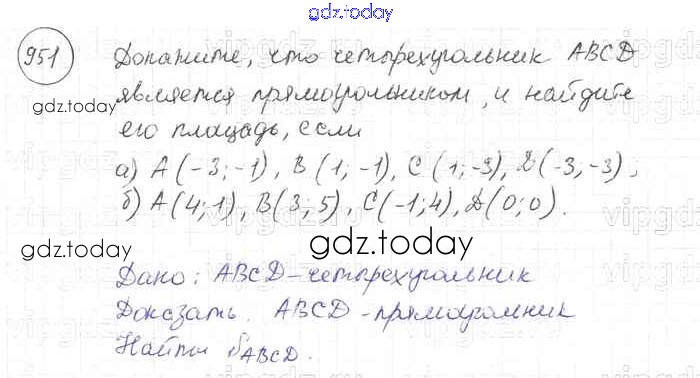 gdz.today
951 Докажите, что четырехугольник ABCD
является прямоугольником, и найдите
gdz.today
его площадь, если
а) A(-3;-1), B(1;-1), C(1;-3), D(-3,-3);
б) A(4;1), B(3;5), C(-1;4), D(0;0).
gdz.today
gdz.today
Дано: ABCD-четырехугольник
Доказать: ABCD-прямоугольник
Найти SABCD.
gdz.today